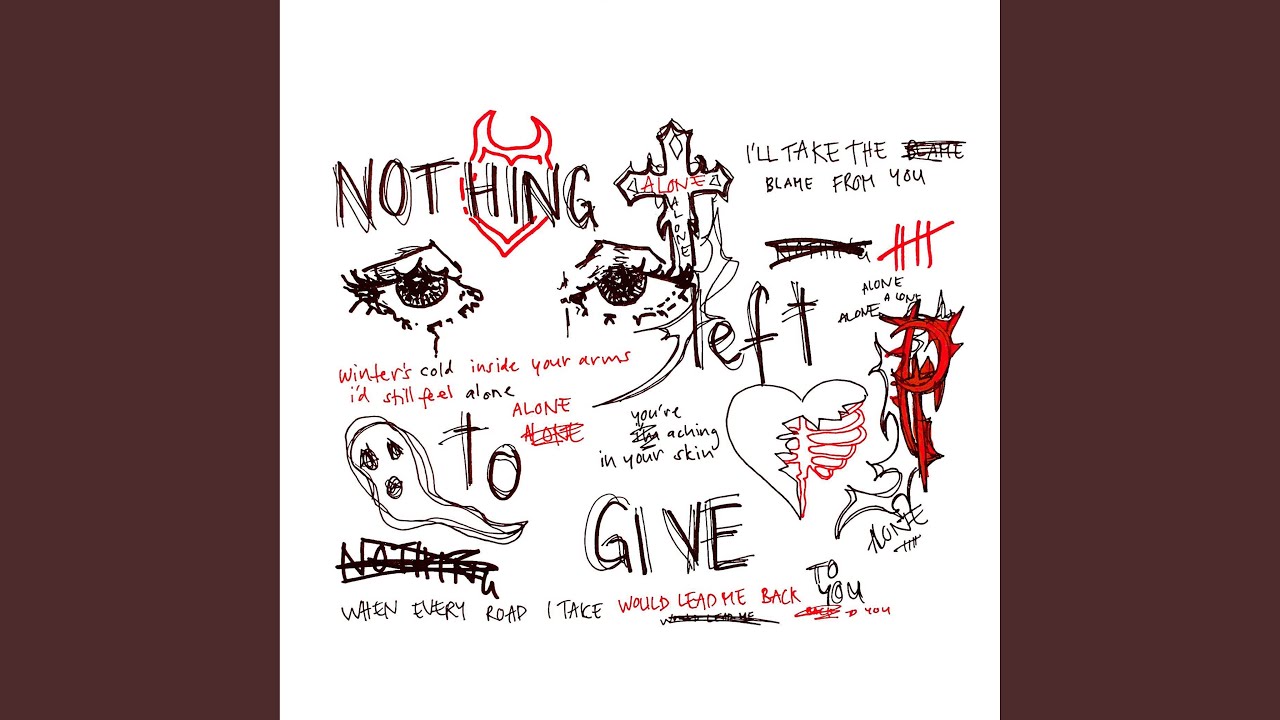 NOTHING
ALONE
ALONE
I'LL TAKE THE BLAME
BLAME FROM YOU
NOTHING
left
ALONE
ALONE
ALONE
winter's cold inside your arms
i'd still feel alone
ALONE
ALONE
to
you're
I'm aching
in your skin
GIVE
ALONE
NOTHING
WHEN EVERY ROAD I TAKE WOULD LEAD ME BACK TO YOU
WOULD LEAD ME BACK TO YOU